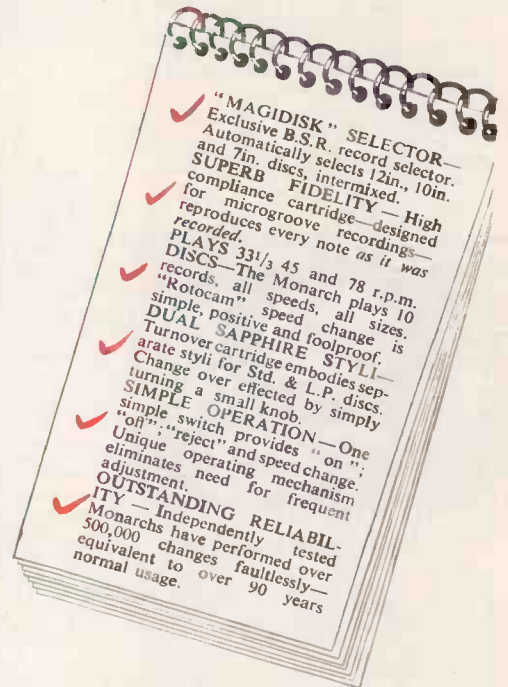 "MAGIDISK" SELECTOR—
Exclusive B.S.R. record selector.
Automatically selects 12in., 10in.
and 7in. discs, intermixed.
SUPERB FIDELITY — High
compliance cartridge—designed
for microgroove recordings—
reproduces every note as it was
recorded.
PLAYS 33 1/3 45 and 78 r.p.m.
DISCS—The Monarch plays 10
records, all speeds, all sizes.
"Rotocam" speed change is
simple, positive and foolproof.
DUAL SAPPHIRE STYLI—
Turnover cartridge embodies sep-
arate styli for Std. & L.P. discs.
Change over effected by simply
turning a small knob.
SIMPLE OPERATION—One
simple switch provides "on";
"off"; "reject" and speed change.
Unique operating mechanism
eliminates need for frequent
adjustment.
OUTSTANDING RELIABIL-
ITY — Independently tested
Monarchs have performed over
500,000 changes faultlessly—
equivalent to over 90 years
normal usage.